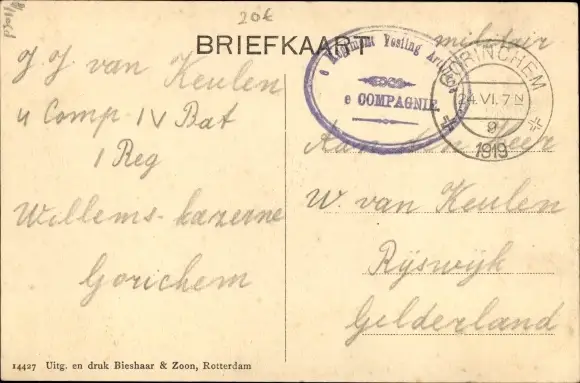 20€
BRIEFKAART
militair
e Regiment Vesting Artillerie
e COMPAGNIE.
GORINCHEM
24.VI.7 N
9
1919
J J van Keulen
4 Comp IV Bat
1 Reg
Willems-kazerne
Gorichem
Aan den Heer
W. van Keulen
Rijswijk
Gelderland
14427 Uitg. en druk Bieshaar & Zoon, Rotterdam